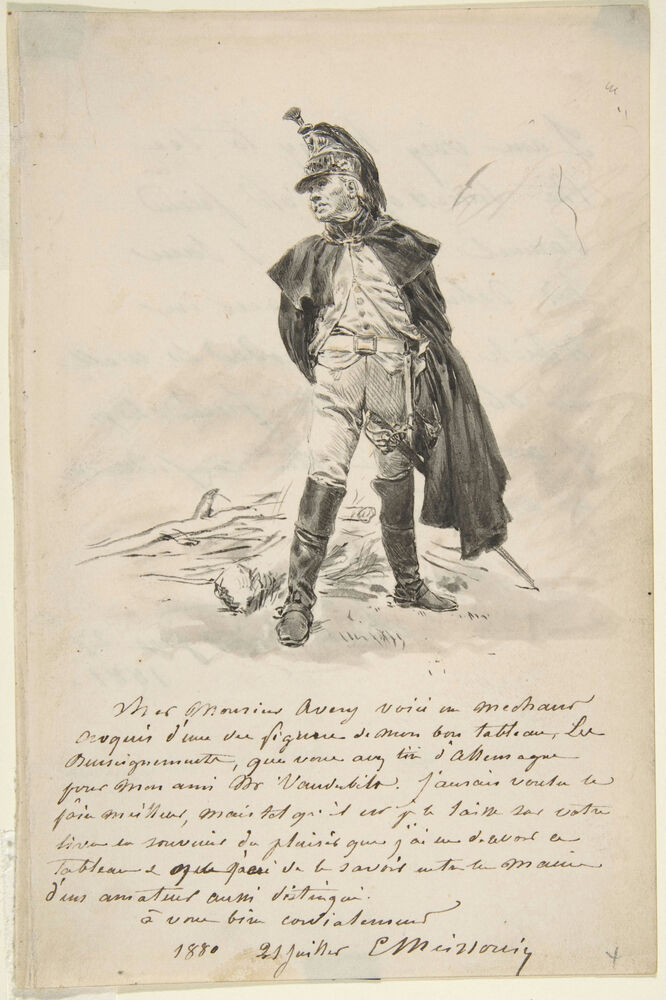 Cher Monsieur Avery voici un mechant
croquis d'une des figures de mon bon tableau, Les
Renseignements, que vous avez tiré d'Allemagne
pour mon ami Mr Vanderbilt. J'aurais voulu le
faire meilleur, mais tel qu'il est je le laisse sur votre
livre en souvenir du plaisir que j'ai eu de revoir ce
tableau et que j'ai de le savoir entre les mains
d'un amateur aussi distingué.
à vous bien cordialement
1880 21 juillet EMeissonier